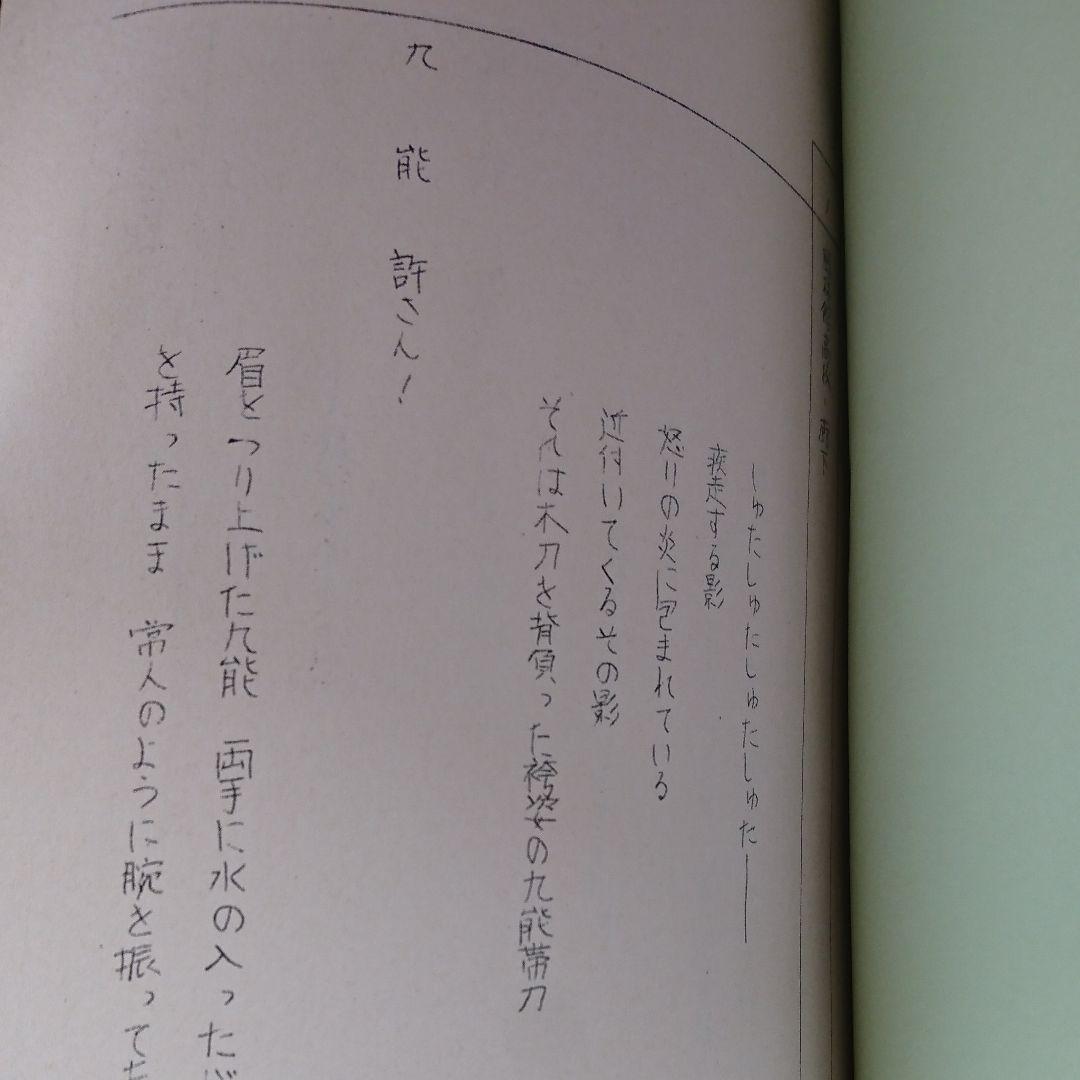 しゅたしゅたしゅたしゅた──
疾走する影
怒りの炎に包まれている
近付いてくるその影
それは木刀を背負った袴姿の九能帯刀
九能 許さん!
眉をつり上げた九能 両手に水の入った
を持ったまま 常人のように腕を振って